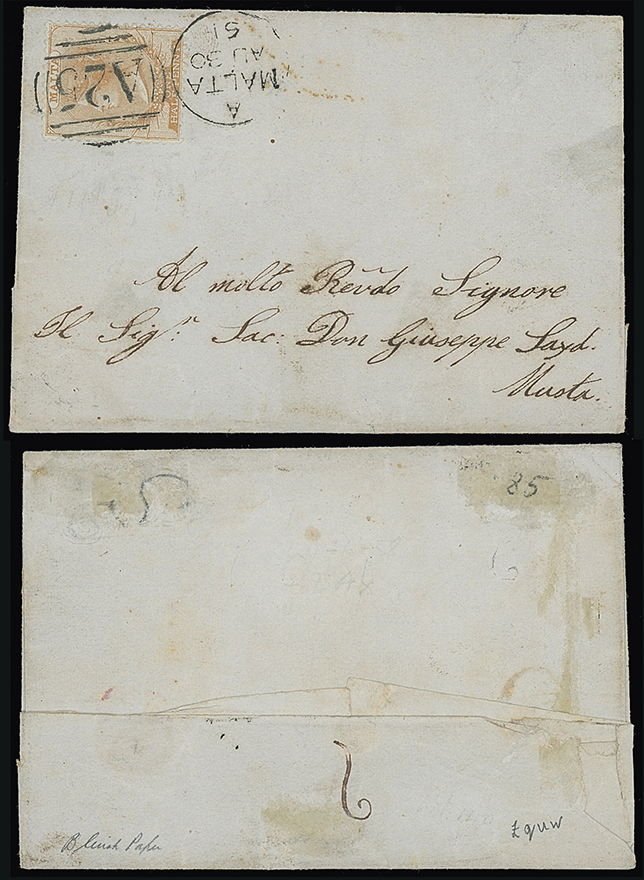 MALTA
HALFPENNY
A25
A
MALTA
AU 30
Al molto Revdo Signore
Il Sigr. Sac: Don Giuseppe Sayd.
Musta.
85
Bluish Paper